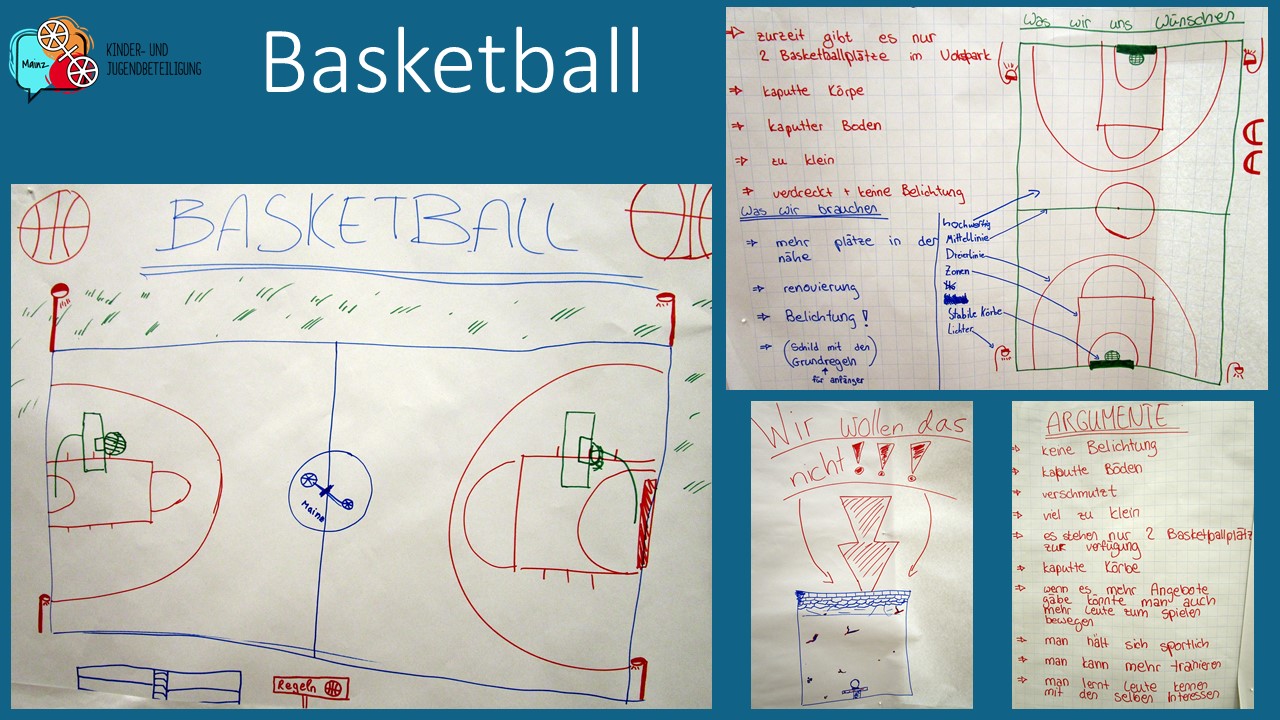 Mainz
KINDER- UND
JUGENDBETEILIGUNG
Basketball
BASKETBALL
Mainz
Regeln
Was wir uns wünschen
zurzeit gibt es nur
2 Basketballplätze im Volkspark
kaputte Körpe
kaputter Boden
zu klein
verdreckt + keine Belichtung
Was wir brauchen
mehr plätze in der
nähe
renovierung
Belichtung!
(Schild mit den
Grundregeln)
für anfänger
hochwertig
Mittellinie
Dreierlinie
Zonen
Stabile Körbe
Lichter
Wir wollen das
nicht!!!
ARGUMENTE
keine Belichtung
kaputte Böden
verschmutzt
viel zu klein
es stehen nur 2 Basketballplätz
zur verfügung
kaputte Körbe
wenn es mehr Angebote
gäbe könnte man auch
mehr leute zum spielen
bewegen
man hält sich sportlich
man kann mehr trainieren
man lernt leute kennen
mit den selben Interessen